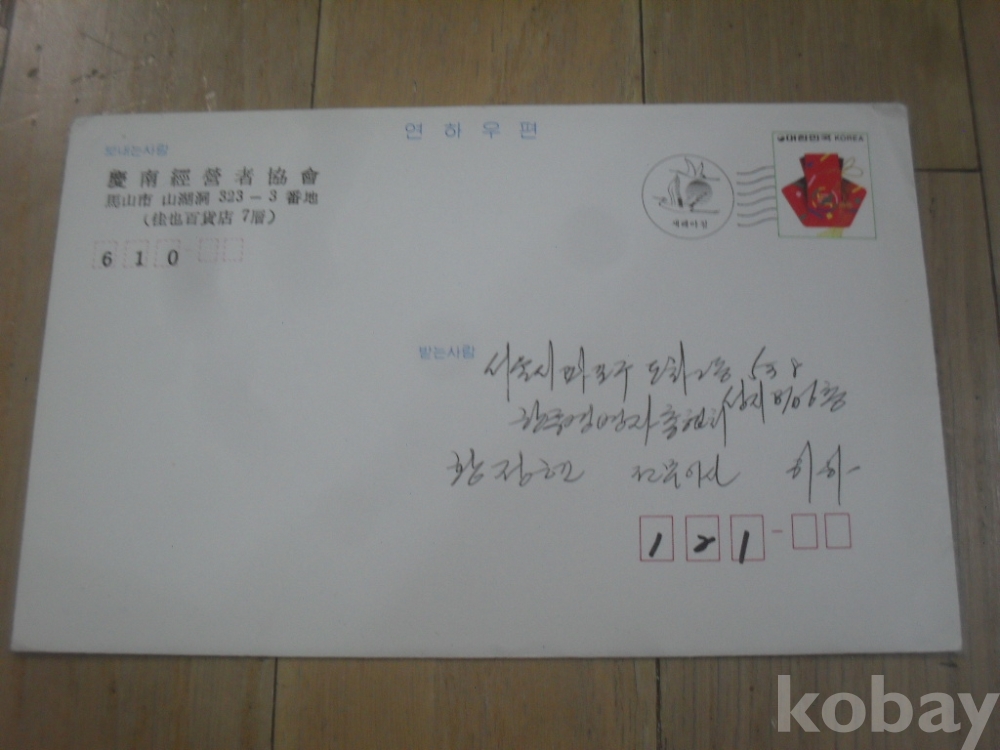 연하우편
보내는사람
慶南經營者協會
馬山市 山湖洞 323-3 番地
(佳也百貨店 7層)
610
대한민국 KOREA
새해아침
받는사람
서울시 마포구 도화2동 538
한국경영자총협회
전무이사 귀하
121-
kobay